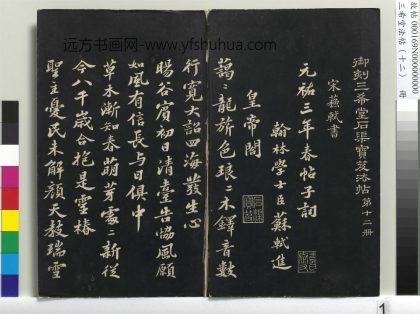 远方书画网-www.yfshuhua.com
御刻三希堂石渠寶笈法帖第十二冊
宋蘇軾書
元祐三年春帖子詞
翰林學士臣蘇軾進
皇帝閤
藹藹龍旂色琅琅木鐸音數
行寬大詔四海發生心
暘谷賓初日清臺告協風願
如風有信長與日俱中
草木漸知春萌芽處處新從
今八千歲合抱是靈椿
聖主憂民未解顏天教瑞雪
三希堂法帖(十二) 冊
1